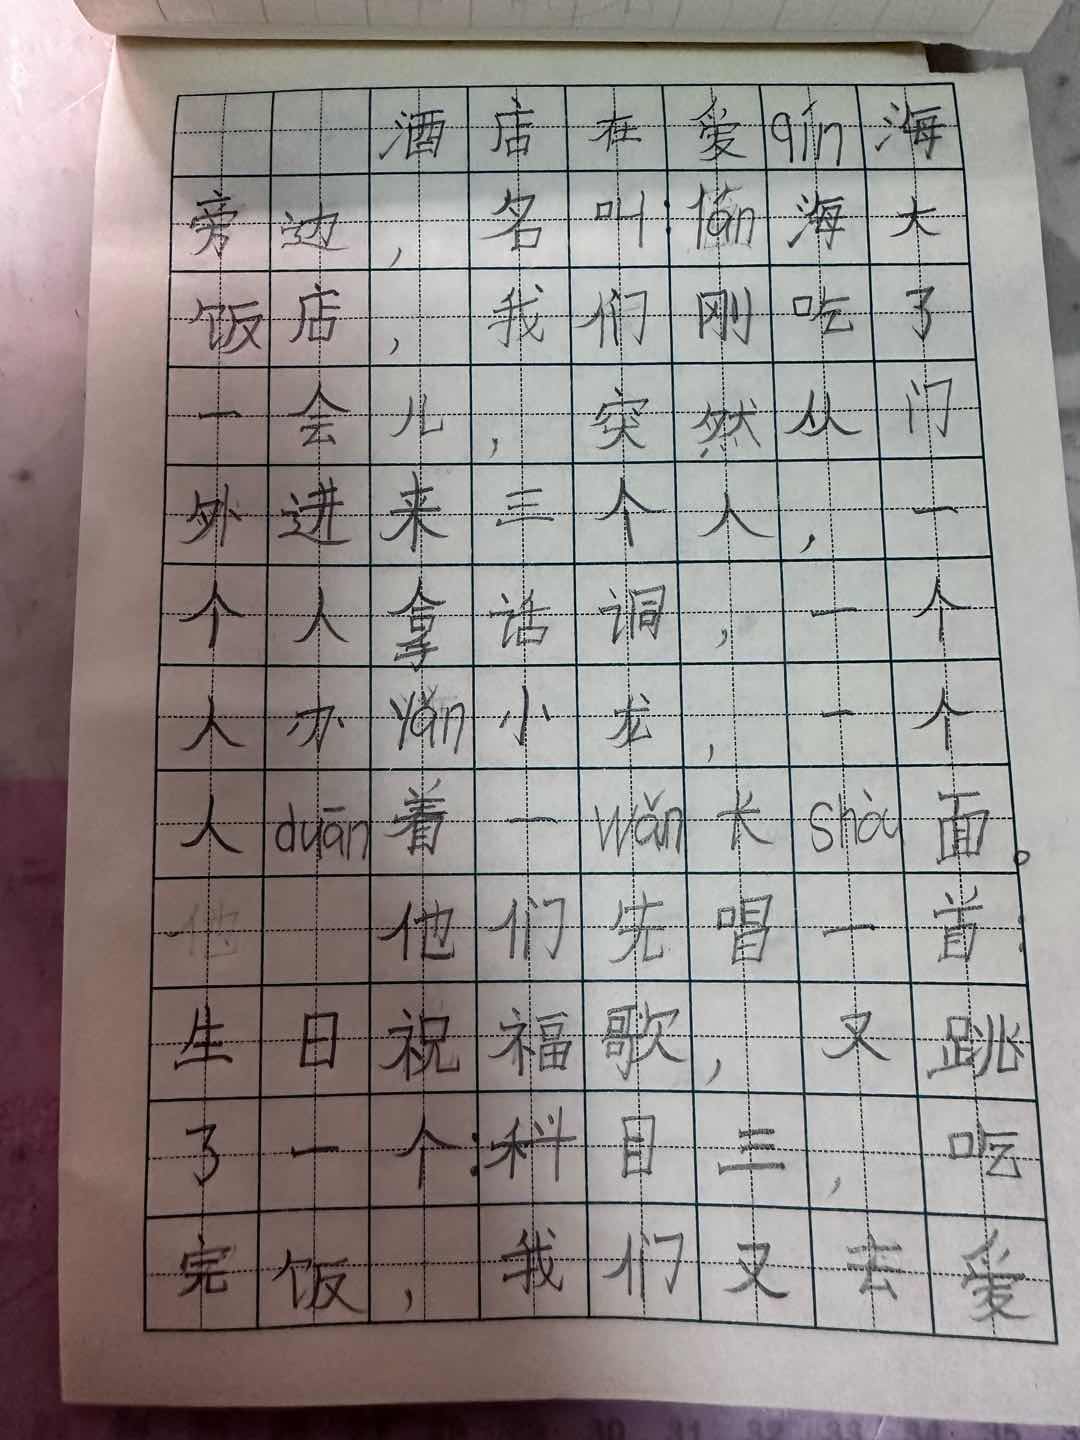 酒店在爱qín海
旁边，名叫：lán海大
饭店，我们刚吃了
一会儿，突然从门
外进来三个人，一
个人拿话诇，一个
人办yǎn小龙，一个
人duān着一wǎn长shòu面。
他们先唱一首：
生日祝福歌，又跳
了一个：科目三，吃
完饭，我们又去爱